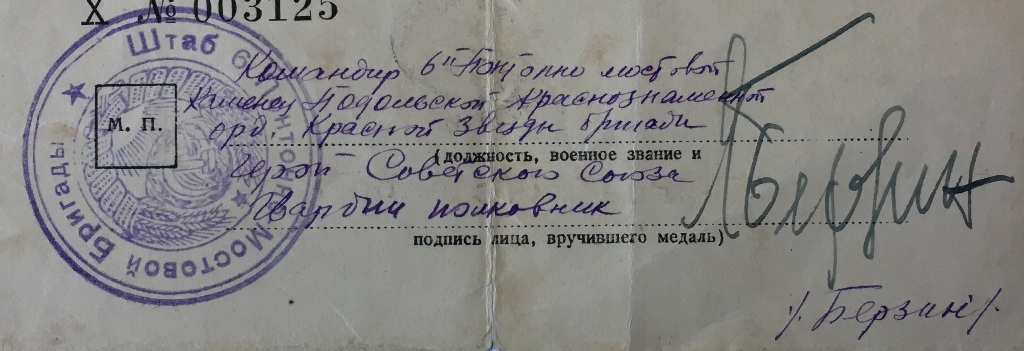 Х № 003125
Штаб 6 Понтонно Мостовой Бригады
М. П.
Командир 6й Понтонно мостовой
Каменец Подольской Краснознаменной
орд. Красной Звезды бригады
(должность, военное звание и
Герой Советского Союза
Гвардии полковник
подпись лица, вручившего медаль)
Берзин
/.Берзин/.